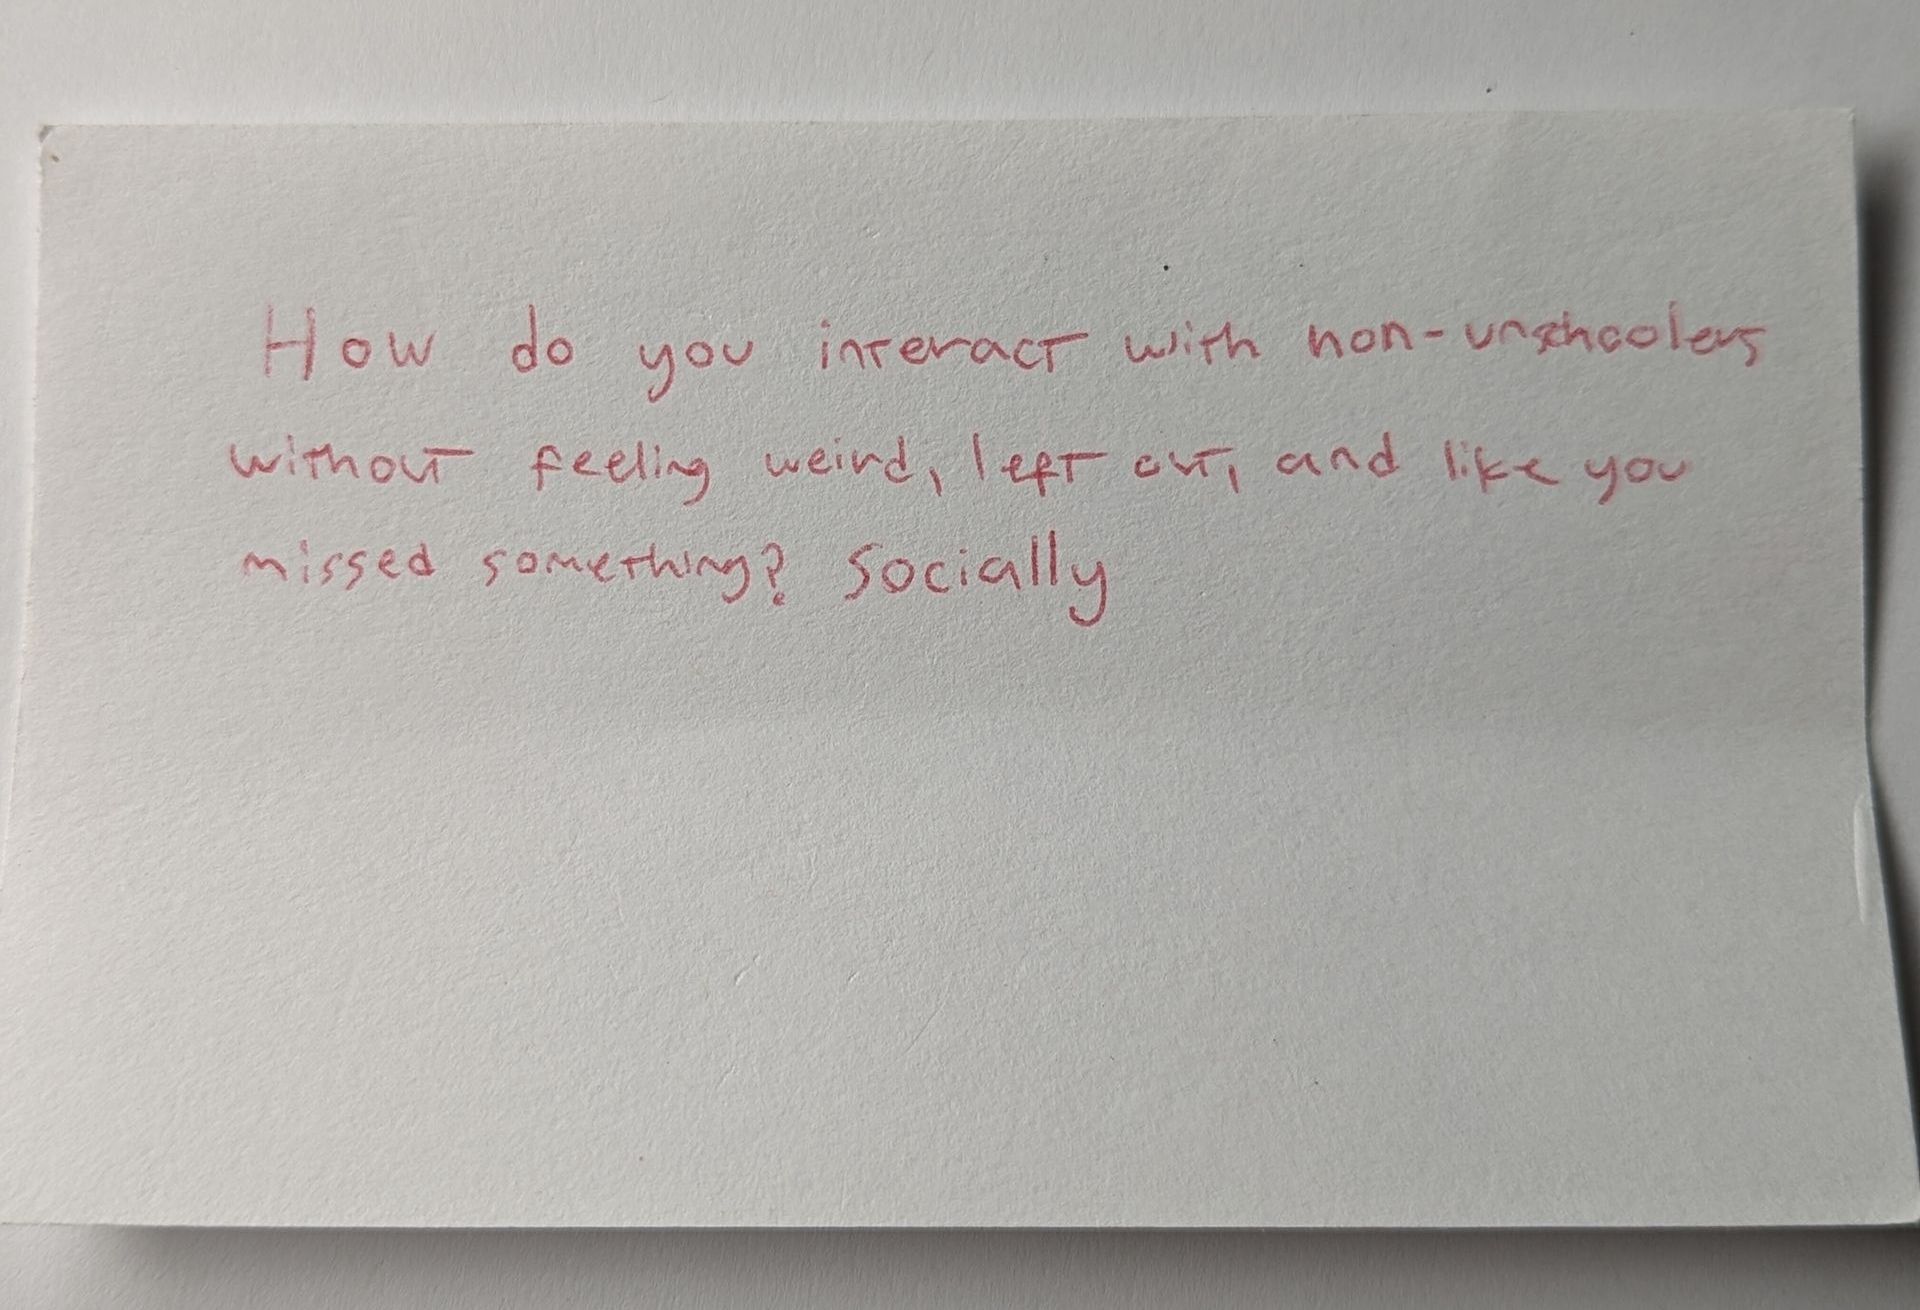 How do you interact with non-unschoolers
without feeling weird, left out, and like you
missed something? Socially